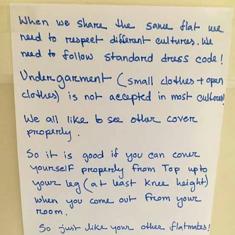 When we share the same flat we
need to respect different cultures. We
need to follow standard dress code!
Undergarment (small clothes + open
clothes) is not accepted in most cultures
We all like to see other cover
properly.
So it is good if you can cover
yourself properly from Top upto
your leg (at least knee height)
when you come out from your
room.
So just like your other flatmates!